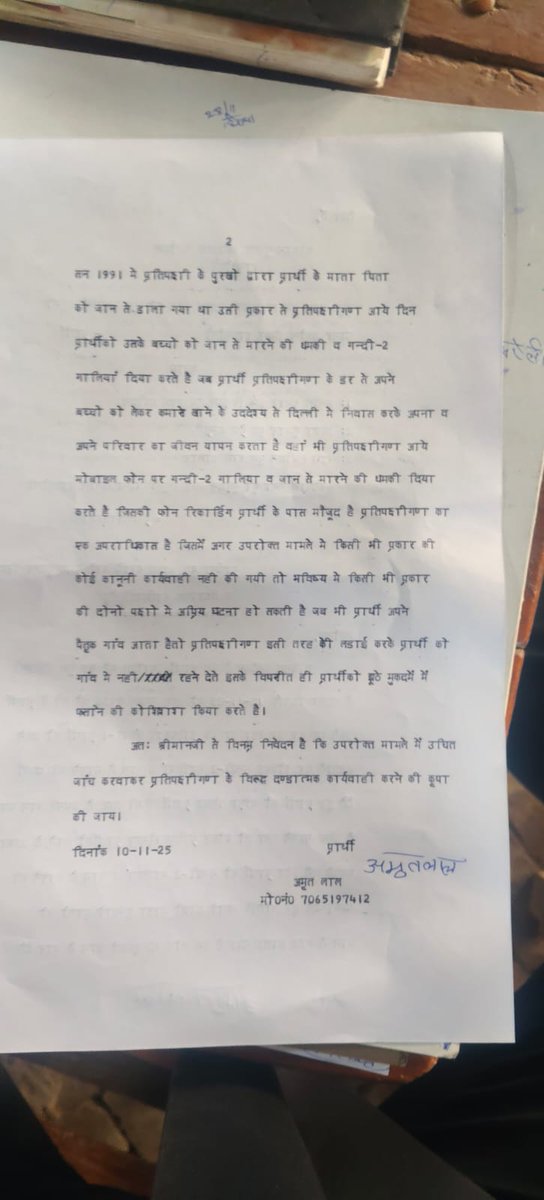 2
सन 1991 मे प्रतिपक्षी के पुरखो द्वारा प्रार्थी के माता पिता
को जान से डाला गया था उसी प्रकार से प्रतिपक्षीगण आये दिन
प्रार्थीको उसके बच्चो को जान से मारने की धमकी व गन्दी-2
गालियाँ दिया करते है जब प्रार्थी प्रतिपक्षीगण के डर से अपने
बच्चो को लेकर कमाने खाने के उददेश्य से दिल्ली मे निवास करके अपना व
अपने परिवार का जीवन यापन करता है वहां भी प्रतिपक्षीगण आये
मोबाइल फोन पर गन्दी-2 गालिया व जान से मारने की धमकी दिया
करते है जिसकी फोन रिकार्डिंग प्रार्थी के पास मौजूद है प्रतिपक्षीगण का
एक अपराधिकास है जिसमें अगर उपरोक्त मामले मे किसी भी प्रकार की
कोई कानूनी कार्यवाही नही की गयी तो भविष्य मे किसी भी प्रकार
की दोनो पक्षो मे अप्रिय घटना हो सकती है जब भी प्रार्थी अपने
पैतृक गाँव जाता हैतो प्रतिपक्षीगण इसी तरह की लडाई करके प्रार्थी को
गाँव मे नही रहने देते इसके विपरीत ही प्रार्थीको झूठे मुकदमें में
फसाने की कोशिश किया करते है।
अतः श्रीमानजी से विनम्र निवेदन है कि उपरोक्त मामले में उचित
जाँच करवाकर प्रतिपक्षीगण के विरूद दण्डात्मक कार्यवाही करने की कृपा
की जाय।
दिनांक 10-11-25 प्रार्थी
अमृतलाल
अमृत लाल
मो0नं0 7065197412